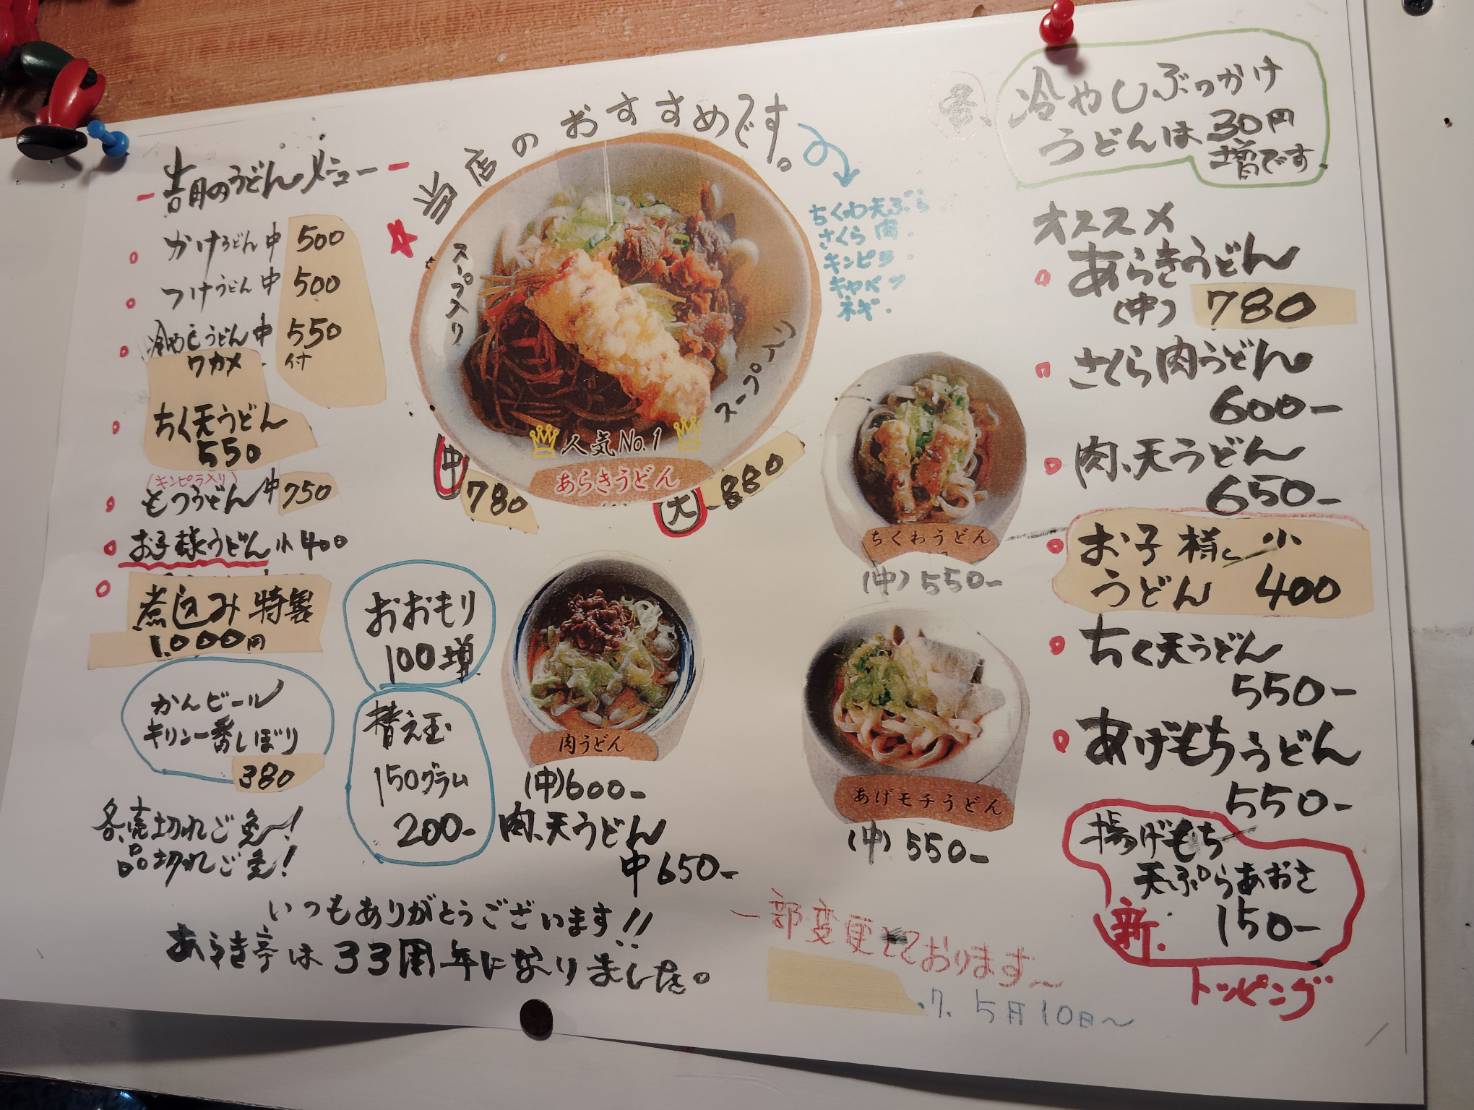 吉月のうどんメニュー
かけうどん中 500
つけうどん中 500
冷やしうどん中 550
ワカメ 付
ちく天うどん
550
(キンピラ入り)
もつうどん中 750
お子様うどん小 400
煮込み 特製
1,000円
かんビール
キリン一番しぼり
380
おおもり
100増
替え玉
150グラム
200-
各、売切れご免〜!
品切れご免!
いつもありがとうございます!!
あらき亭は33周年になりました。
当店のおすすめです。
スープ入り
スープ入り
ちくわ天ぷら
さくら肉
キンピラ
キャベツ
ネギ
人気No.1
あらきうどん
中 780
大 880
肉うどん
(中)600-
肉、天うどん
中650-
ちくわうどん
(中)550-
あげモチうどん
(中)550-
一部変更しております〜
.7. 5月10日〜
冷やしぶっかけ
うどんは30円
増です.
オススメ
あらきうどん
(中) 780
さくら肉うどん
600-
肉、天うどん
650-
お子様 小
うどん 400
ちく天うどん
550-
あげもちうどん
550-
揚げもち
天ぷらあおさ
新. 150-
トッピング